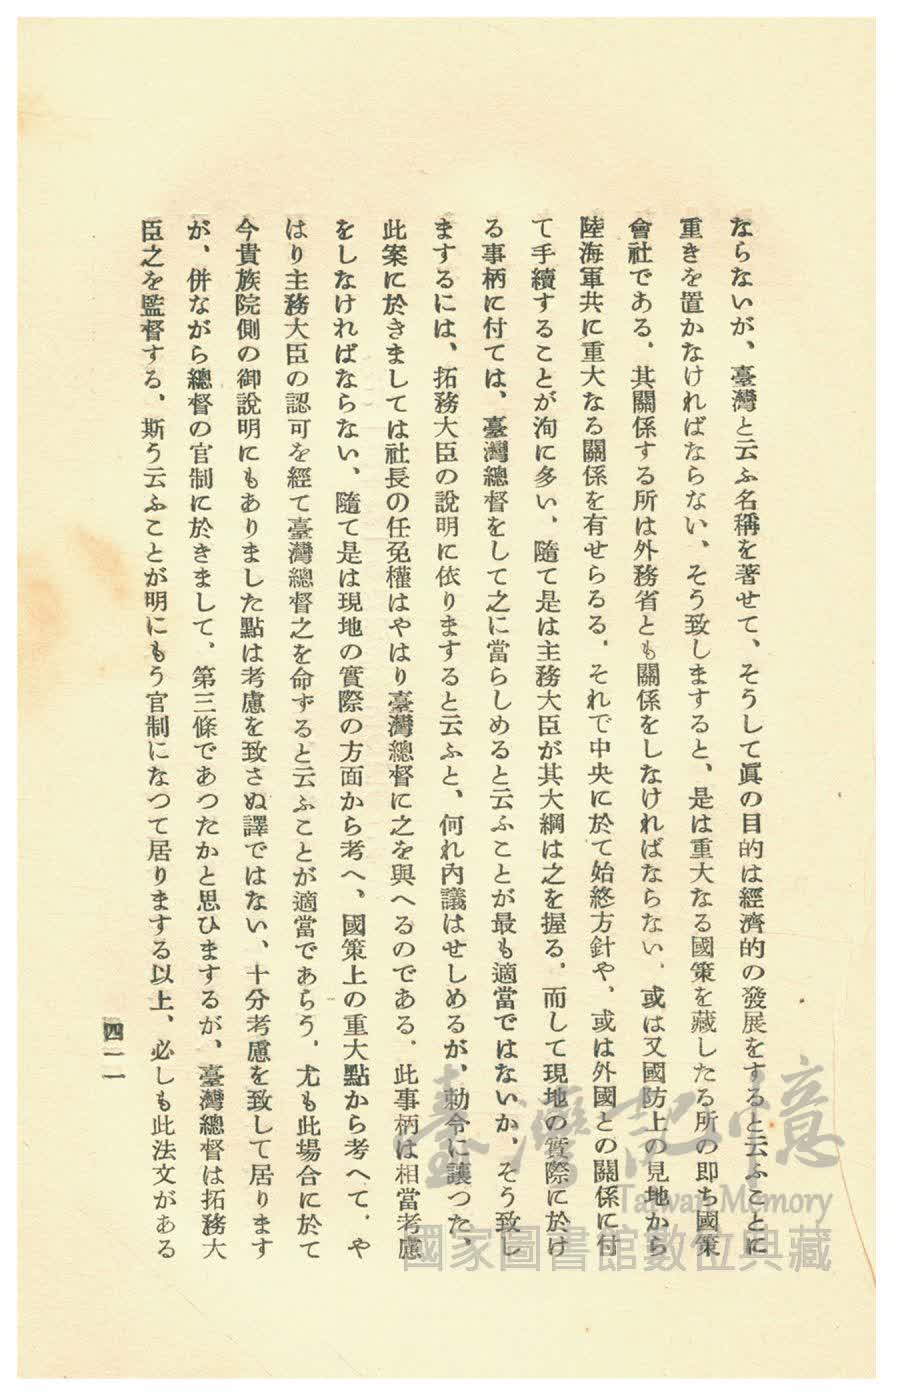 ならないが、臺灣と云ふ名稱を著せて、そうして眞の目的は經濟的の發展をすると云ふことに
重きを置かなければならない、そう致しますると、是は重大なる國策を藏したる所の卽ち國策
會社である、其關係する所は外務省とも關係をしなければならない、或は又國防上の見地から
陸海軍共に重大なる關係を有せらるる、それで中央に於て始終方針や、或は外國との關係に付
て手續することが洵に多い、隨て是は主務大臣が其大綱は之を握る、而して現地の實際に於け
る事柄に付ては、臺灣總督をして之に當らしめると云ふことが最も適當ではないか、そう致し
まするには、拓務大臣の說明に依りますると云ふと、何れ內議はせしめるが、勅令に讓つた、
此案に於きましては社長の任免權はやはり臺灣總督に之を與へるのである、此事柄は相當考慮
をしなければならない、隨て是は現地の實際の方面から考へ、國策上の重大點から考へて、や
はり主務大臣の認可を經て臺灣總督之を命ずると云ふことが適當であらう、尤も此場合に於て
今貴族院側の御說明にもありました點は考慮を致さぬ譯ではない、十分考慮を致して居ります
が、併ながら總督の官制に於きまして、第三條であつたかと思ひまするが、臺灣總督は拓務大
臣之を監督する、斯う云ふことが明にもう官制になつて居りまする以上、必しも此法文がある
四一一
臺灣記憶
Taiwan Memory
國家圖書館數位典藏